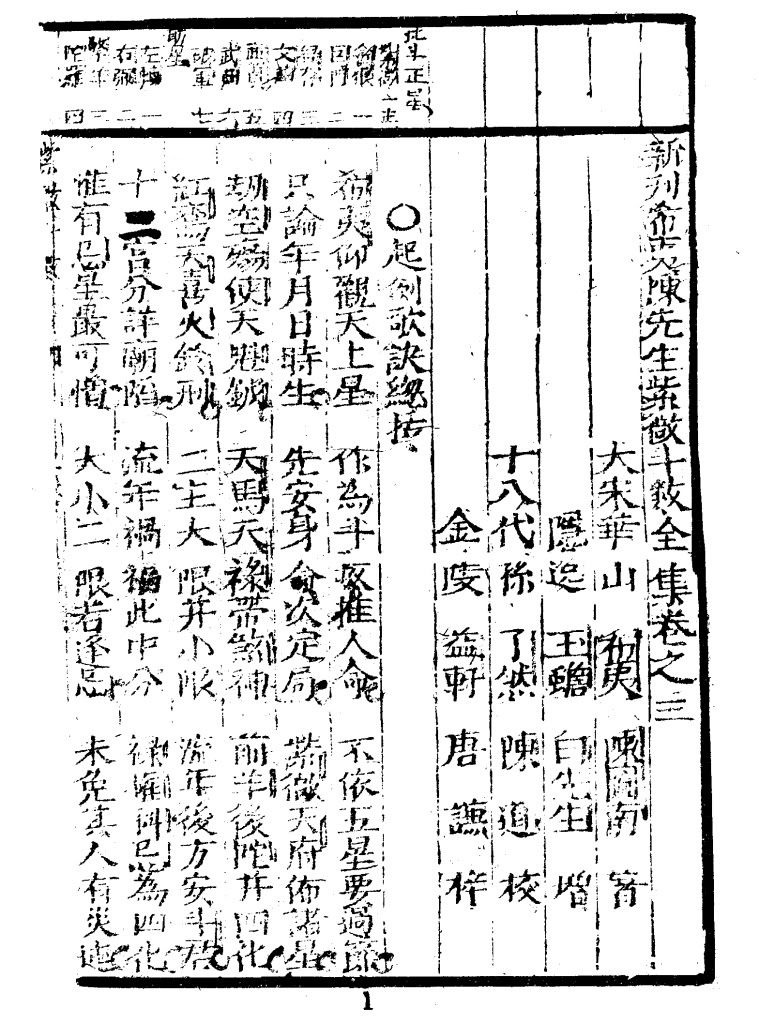 新刊希夷陳先生紫微斗数全集卷之三
大宋華山 希夷 陳圖南 著
隱逸 玉蟾 白先生 增
十八代孫 了然 陳道 校
金陵 益軒 唐謙 梓
○起例歌訣總括
希夷仰觀天上星 作為斗数推人命 不依五星要過節
只論年月日時生 先安身命次定局 紫微天府佈諸星
劫空傷使天魁鉞 天馬天祿帶煞神 前羊後陀并四化
紅鸞天喜火鈴刑 二主大限并小限 流年後方安斗君
十二宮分詳廟陷 流年禍福此中分 祿權科忌為四化
惟有忌星最可憎 大小二限若逢忌 未免其人有災迍
北斗正星
貪狼 一
巨門 二
祿存 三
文曲 四
廉貞 五
武曲 六
破軍 七
助星
左輔 一
右弼 二
擎羊 三
陀羅 四
1